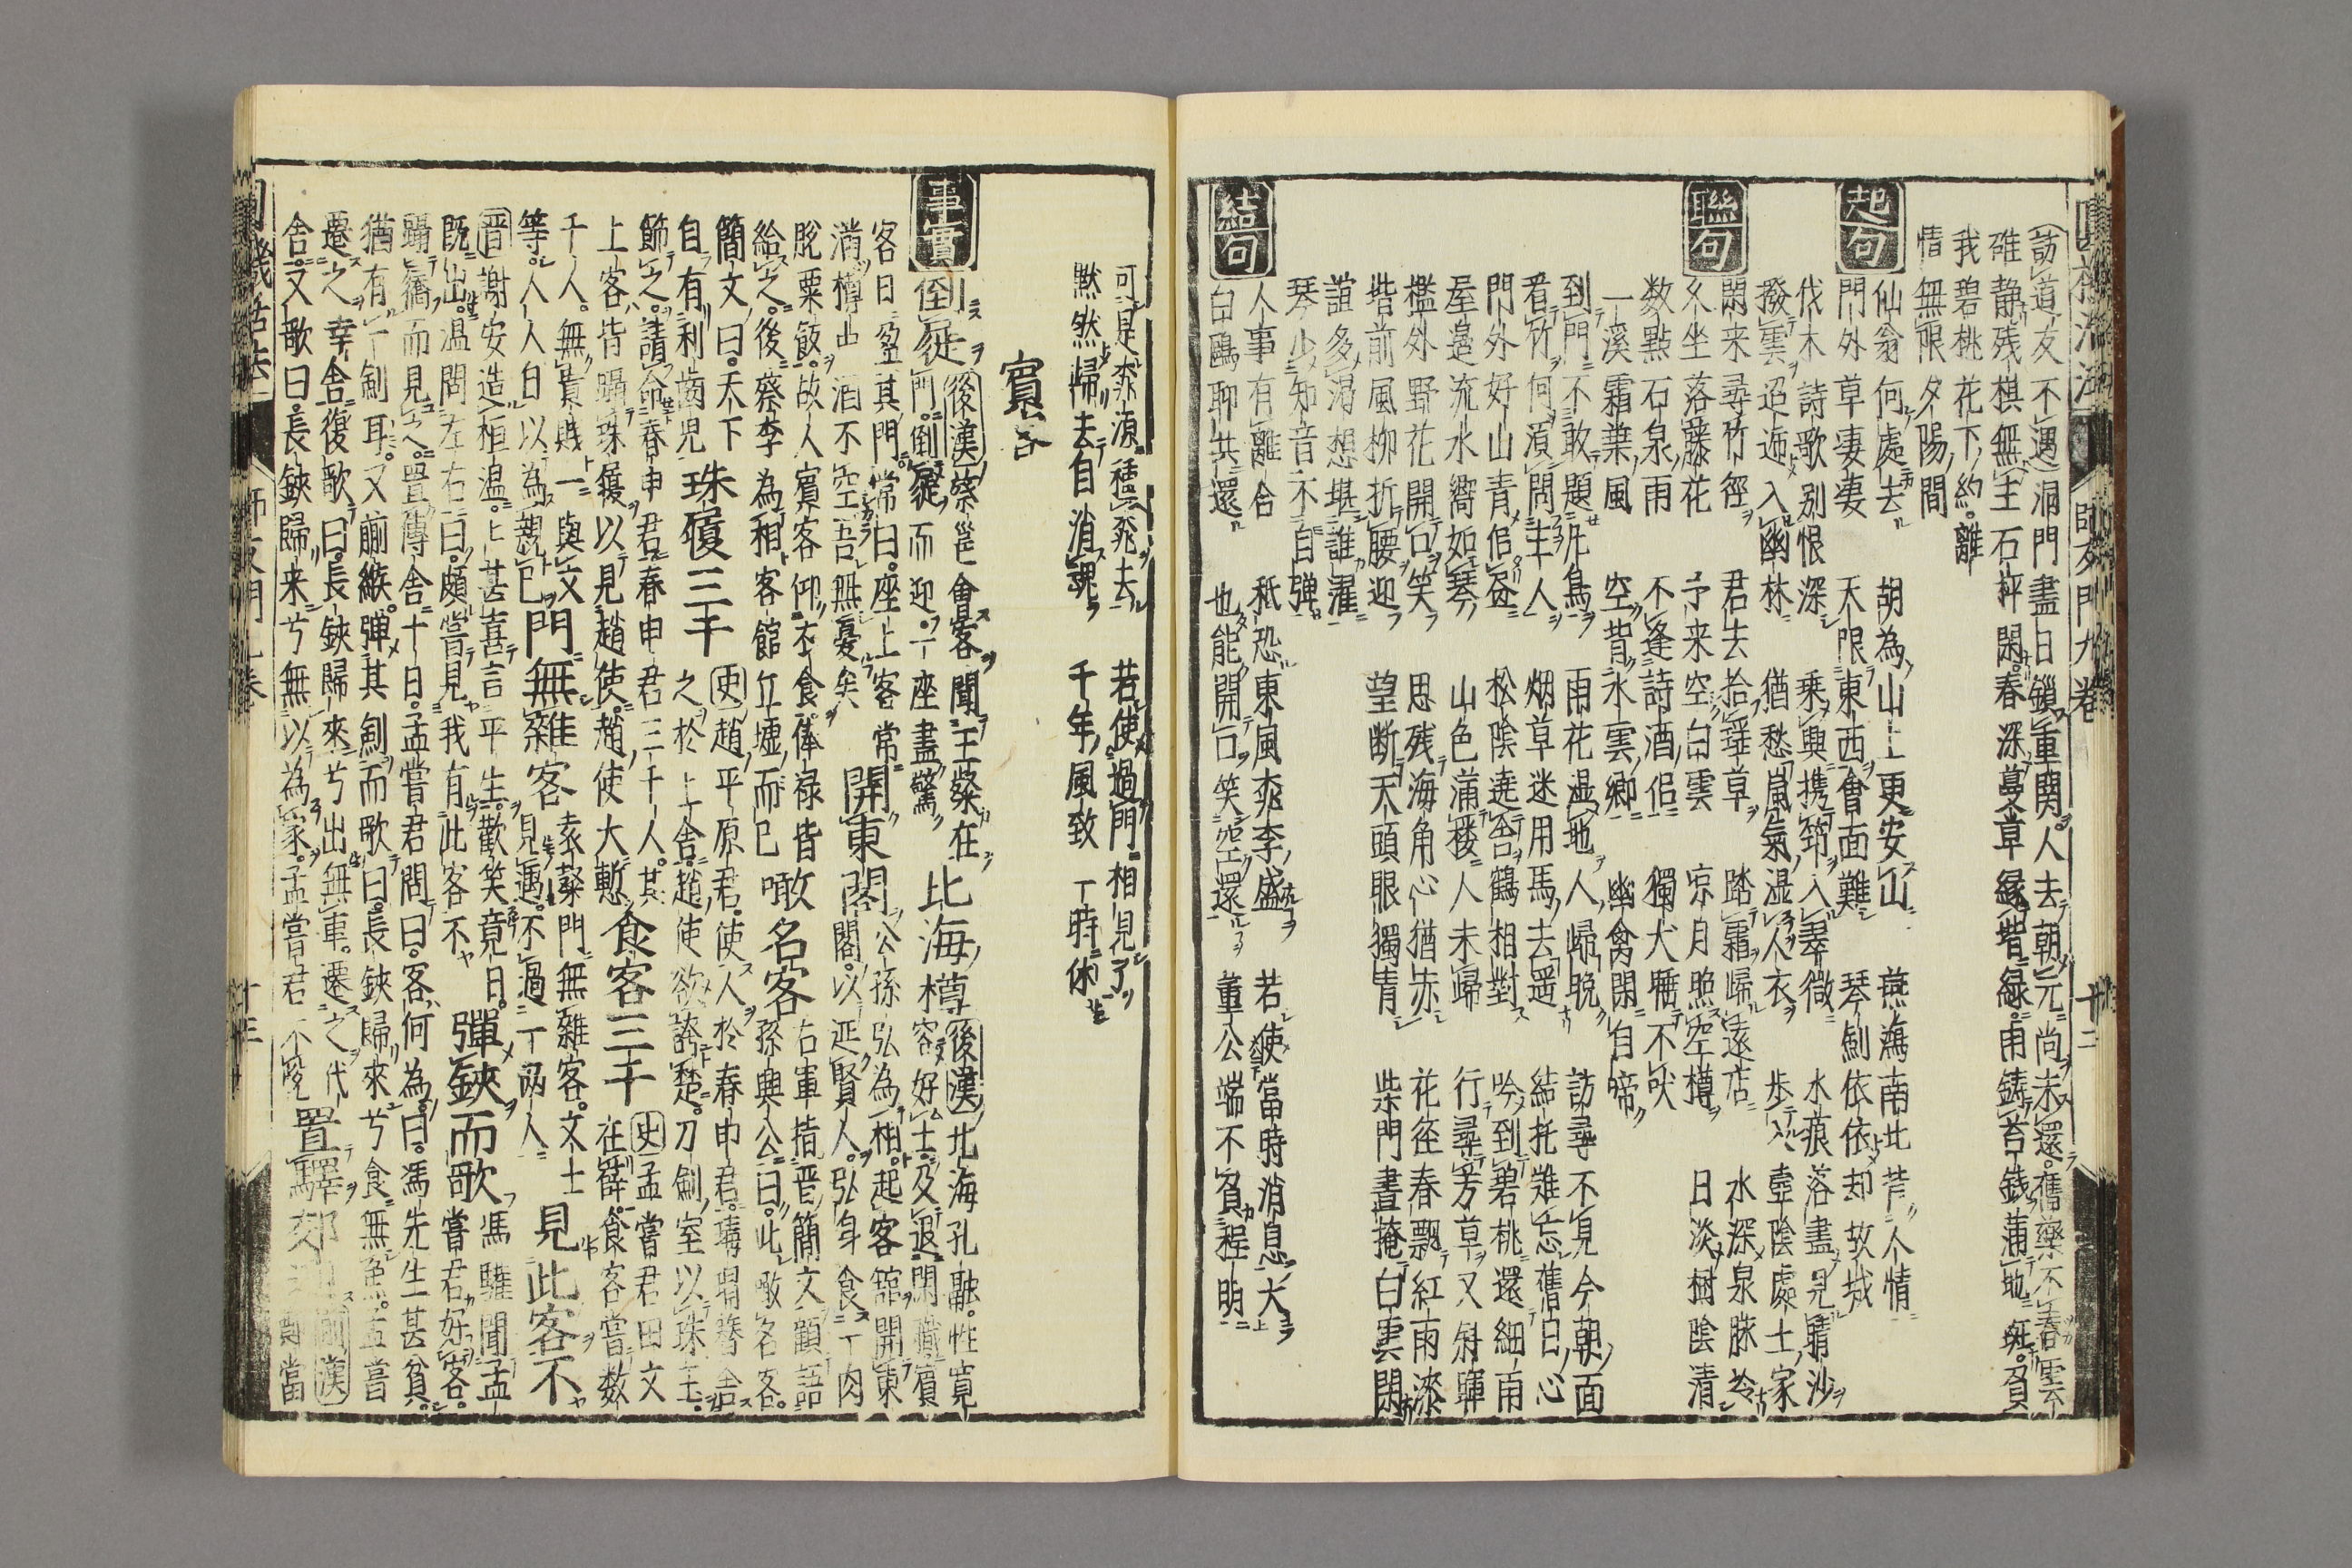 師友門九卷
(訪道友不遇)洞門盡日鎖重關。人去朝元尚未還。舊藥不春雲
碓静残棋無主石枰閑。春深蔓草緑。雨鋳苔銭蒲地斑。負
我碧桃花下約。離
情無限夕陽間
起句
仙翁何處去 胡為山上更安山 燕鴻南北 人情
門外草凄凄 天限東西會面難 琴劍依依却故城
伐木詩歌別恨深 乗興携筇入翠微 水痕落盡見晴沙
撥雲迢遞入幽林 猶愁嵐氣湿人衣 歩入壺陰處士家
聯句
閑来尋竹徑 君去拾瑶草 踏霜歸遠店 水深泉脉冷
久坐落藤花 予来空白雲 凉月照空樽 日淡樹陰清
数點石泉雨 不逢詩酒侶 獨犬曠不吠
一溪霜葉風 空背水雲卿 幽禽閑自啼
到門不敢題凡鳥 雨花湿地人歸晩 訪尋不見今朝面
看竹何須問主人 烟草迷用馬去遥 結托難忘舊日心
門外好山青倍 松陰遶舎鶴相對 吟到碧桃還細雨
屋邉流水響如琴 山色蒲楼人未歸 行尋芳草又斜暉
檻外野花開口笑 思残海角心猶赤 花徑春飄紅雨漆
堦前風柳折腰迎 望断天頭眼獨青 柴門晝掩白雲閑
誼多渇想堪誰濯
琴少知音不自弾
結句
人事有離合 秖恐東風桃李盛 若使當時消息大
白鷗聊共還 也能開口笑空還 董公端不負程明
可是桃源種桃去 若使過門相見了
黙然歸去自消魂 千年風致一時休
賓客
事實
倒屣(後漢)蔡邕會客聞王粲在
門。倒屣而迎。一座盡驚 北海樽(後漢)北海孔融。性寛
容好士。及退閑職賓
客日盈其門。常曰。座上客常 開東閣 公孫弘為相。起客舘開東
閣。以延賢人。弘身食一肉
満樽中酒不空吾無憂矣
脱粟飯。故人賓客仰衣食。俸禄皆
給之。後蔡李為相客館丘墟而已 噉名客 右軍指晋簡文顧語
孫興公曰。此噉名客。
簡文曰。天下
自有利齒児 珠履三千 (史)趙平原君使人於春申君
之於上舎。趙使欲誇楚。刀劍室以珠玉
飾之。請命春申君。春申君三千人。其
上客皆躡珠履以見趙使。趙使大慙 食客三千 (史)孟嘗君田文
在薛。食客嘗数
千人。無貴賎一與文
等。人人自以為親已 門無雜客 袁粲門無雜客。文士
見遇。不過一兩人 見此客不
(晋)謝安造桓温。甚喜言平生。歡笑竟日。
既出。温問左右曰。頗嘗見我有此客不 彈鋏而歌 馮驩聞孟
嘗君好客。
躡屩而見之。置傳舎十日。孟嘗君問曰。客何為。曰。馮先生甚貧。
猶有一劍耳。又蒯緱。彈其劍而歌曰。長鋏歸來兮食無魚。孟嘗
遷之幸舎。復歌曰。長鋏歸來兮出無車。遷之代
舎。又歌曰。長鋏歸来兮無以為家。孟嘗君不悅 置驛